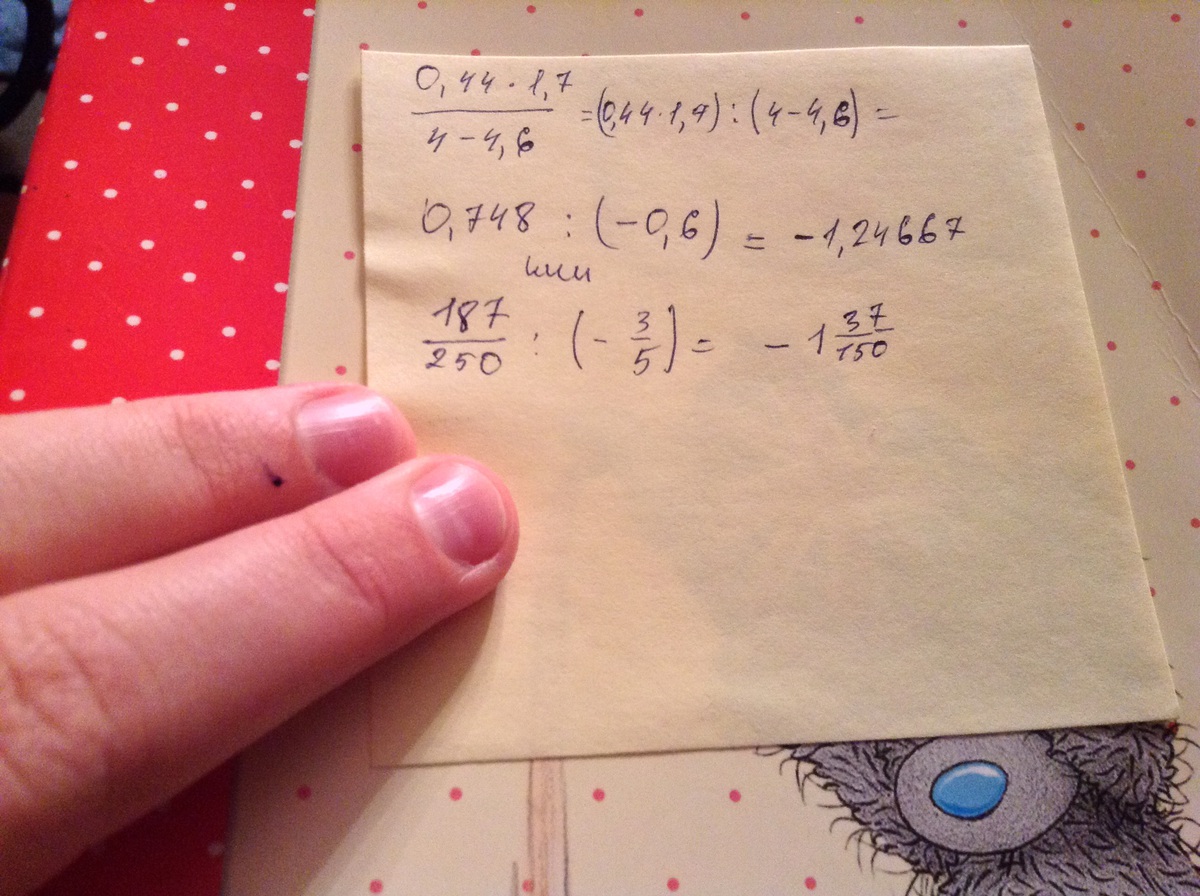 0,44 · 1,7 / 4 - 4,6 = (0,44 · 1,7) : (4 - 4,6) =
0,748 : (-0,6) = -1,24667
или
187/250 : (- 3/5) = - 1 37/150